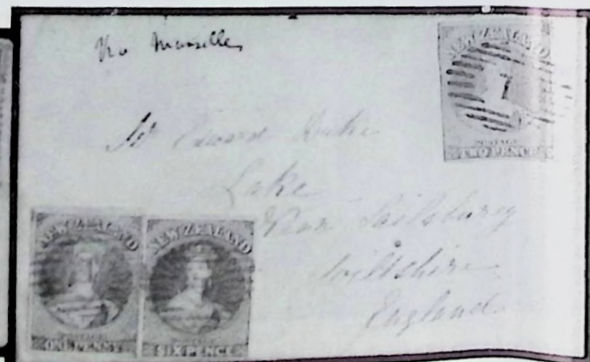 Via Marseilles
NEW ZEALAND
7
POSTAGE
TWO PENCE
Mr Edward
Lake
Near Salisbury
Wiltshire
England
NEW ZEALAND
7
ONE PENNY
NEW ZEALAND
SIX PENCE